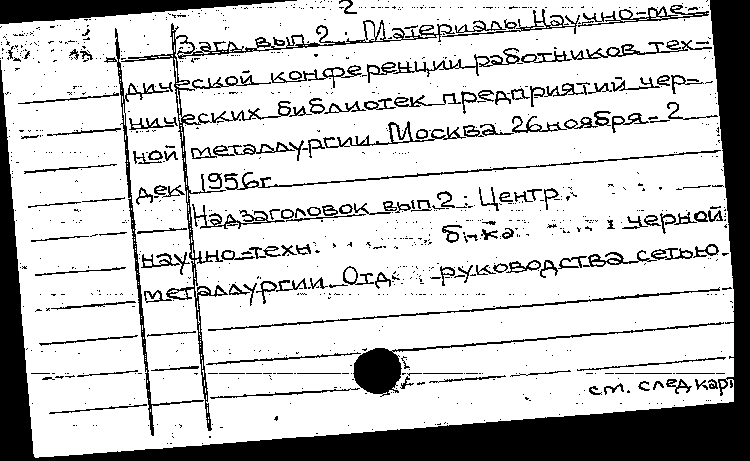 2
Загл. вып. 2: Материалы Научно-ме-
дической конференции работников тех-
нических библиотек предприятий чер-
ной металлургии. Москва. 26 ноября - 2
дек. 1956г.
Надзаголовок вып. 2: Центр.
научно-техн. б-ка черной
металлургии. Отд. руководства сетью
см. след карт